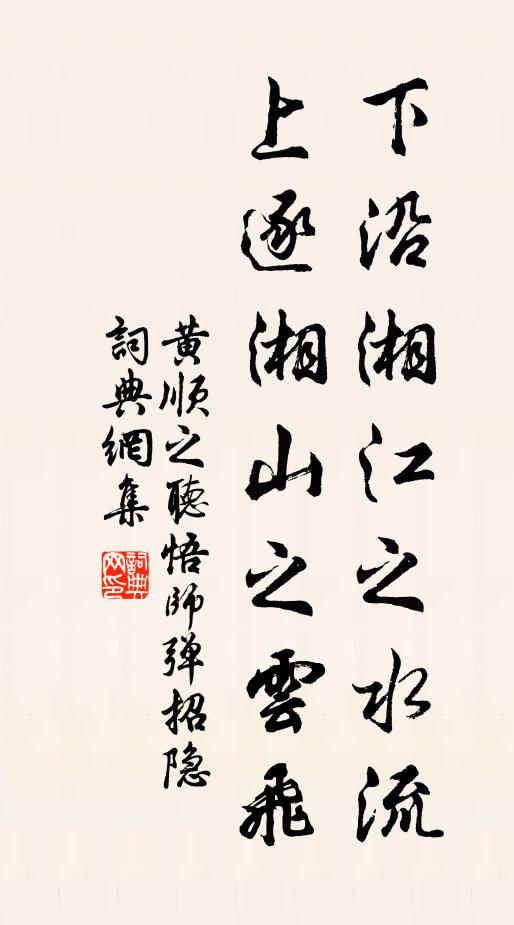 下沿湘江之水流
上逐湘山之雲飛
黄順之聽悟師弹招隐
詞典網集
詞典網印